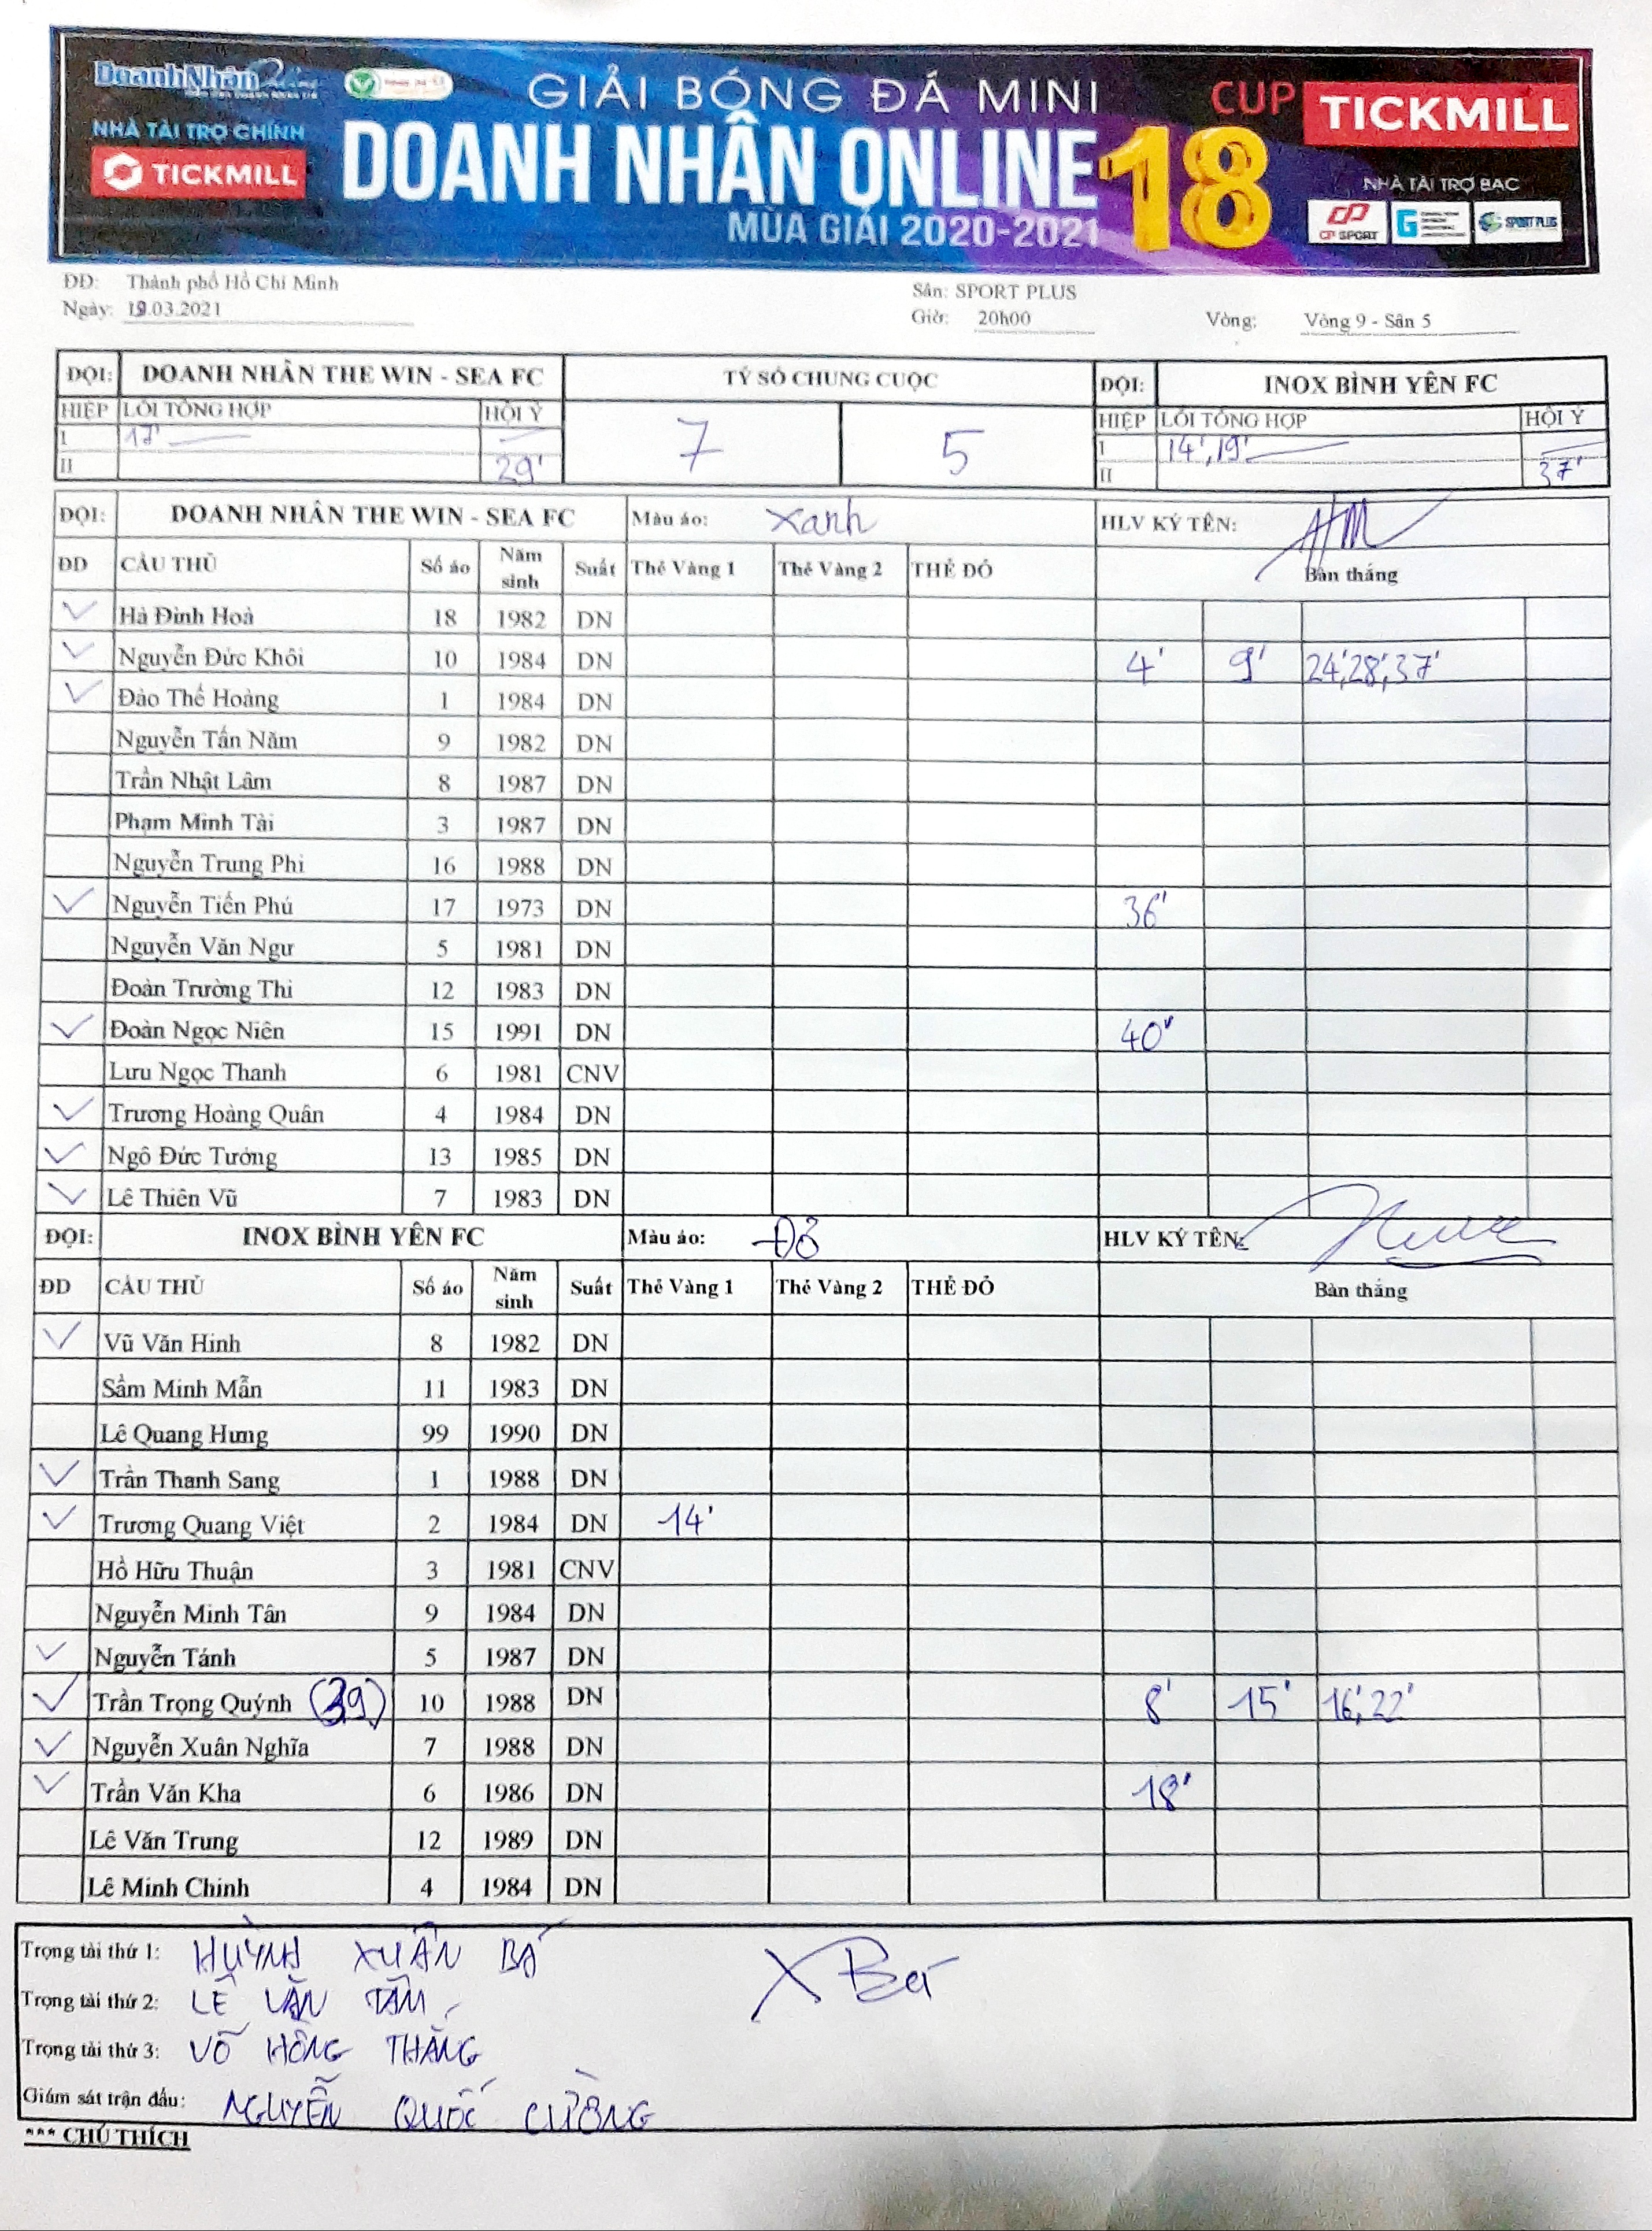 DoanhNhân Online
GIẢI BÓNG ĐÁ MINI
CUP TICKMILL
NHÀ TÀI TRỢ CHÍNH
TICKMILL
DOANH NHÂN ONLINE 18
MÙA GIẢI 2020-2021
NHÀ TÀI TRỢ BẠC
CP SPORT
SPORT PLUS
ĐĐ: Thành phố Hồ Chí Minh
Sân: SPORT PLUS
Ngày: 19.03.2021
Giờ: 20h00 Vòng: Vòng 9 - Sân 5
ĐỘI: DOANH NHÂN THE WIN - SEA FC TỶ SỐ CHUNG CUỘC ĐỘI: INOX BÌNH YÊN FC
HIỆP LỖI TỔNG HỢP HỘI Ý 7 5 HIỆP LỖI TỔNG HỢP HỘI Ý
I 17' I 14', 19'
II 29' II 37'
ĐỘI: DOANH NHÂN THE WIN - SEA FC Màu áo: Xanh HLV KÝ TÊN:
ĐD CẦU THỦ Số áo Năm sinh Suất Thẻ Vàng 1 Thẻ Vàng 2 THẺ ĐỎ Bàn thắng
✓ Hà Đình Hoà 18 1982 DN
✓ Nguyễn Đức Khôi 10 1984 DN 4' 9' 24', 28', 37'
✓ Đào Thế Hoàng 1 1984 DN
Nguyễn Tấn Năm 9 1982 DN
Trần Nhật Lâm 8 1987 DN
Phạm Minh Tài 3 1987 DN
Nguyễn Trung Phi 16 1988 DN
✓ Nguyễn Tiến Phú 17 1973 DN 36'
Nguyễn Văn Ngư 5 1981 DN
Đoàn Trường Thi 12 1983 DN
✓ Đoàn Ngọc Niên 15 1991 DN 40'
Lưu Ngọc Thanh 6 1981 CNV
✓ Trương Hoàng Quân 4 1984 DN
✓ Ngô Đức Tưởng 13 1985 DN
✓ Lê Thiên Vũ 7 1983 DN
ĐỘI: INOX BÌNH YÊN FC Màu áo: Đỏ HLV KÝ TÊN:
ĐD CẦU THỦ Số áo Năm sinh Suất Thẻ Vàng 1 Thẻ Vàng 2 THẺ ĐỎ Bàn thắng
✓ Vũ Văn Hinh 8 1982 DN
Sầm Minh Mẫn 11 1983 DN
Lê Quang Hưng 99 1990 DN
✓ Trần Thanh Sang 1 1988 DN
✓ Trương Quang Việt 2 1984 DN 14'
Hồ Hữu Thuận 3 1981 CNV
Nguyễn Minh Tân 9 1984 DN
✓ Nguyễn Tánh 5 1987 DN
✓ Trần Trọng Quýnh (39) 10 1988 DN 8' 15' 16', 22'
✓ Nguyễn Xuân Nghĩa 7 1988 DN
✓ Trần Văn Kha 6 1986 DN 18'
Lê Văn Trung 12 1989 DN
Lê Minh Chinh 4 1984 DN
Trọng tài thứ 1: HUỲNH XUÂN BÁ X Bá
Trọng tài thứ 2: LÊ VĂN TÂM
Trọng tài thứ 3: VÕ HỒNG THẮNG
Giám sát trận đấu: NGUYỄN QUỐC CƯỜNG
*** CHÚ THÍCH